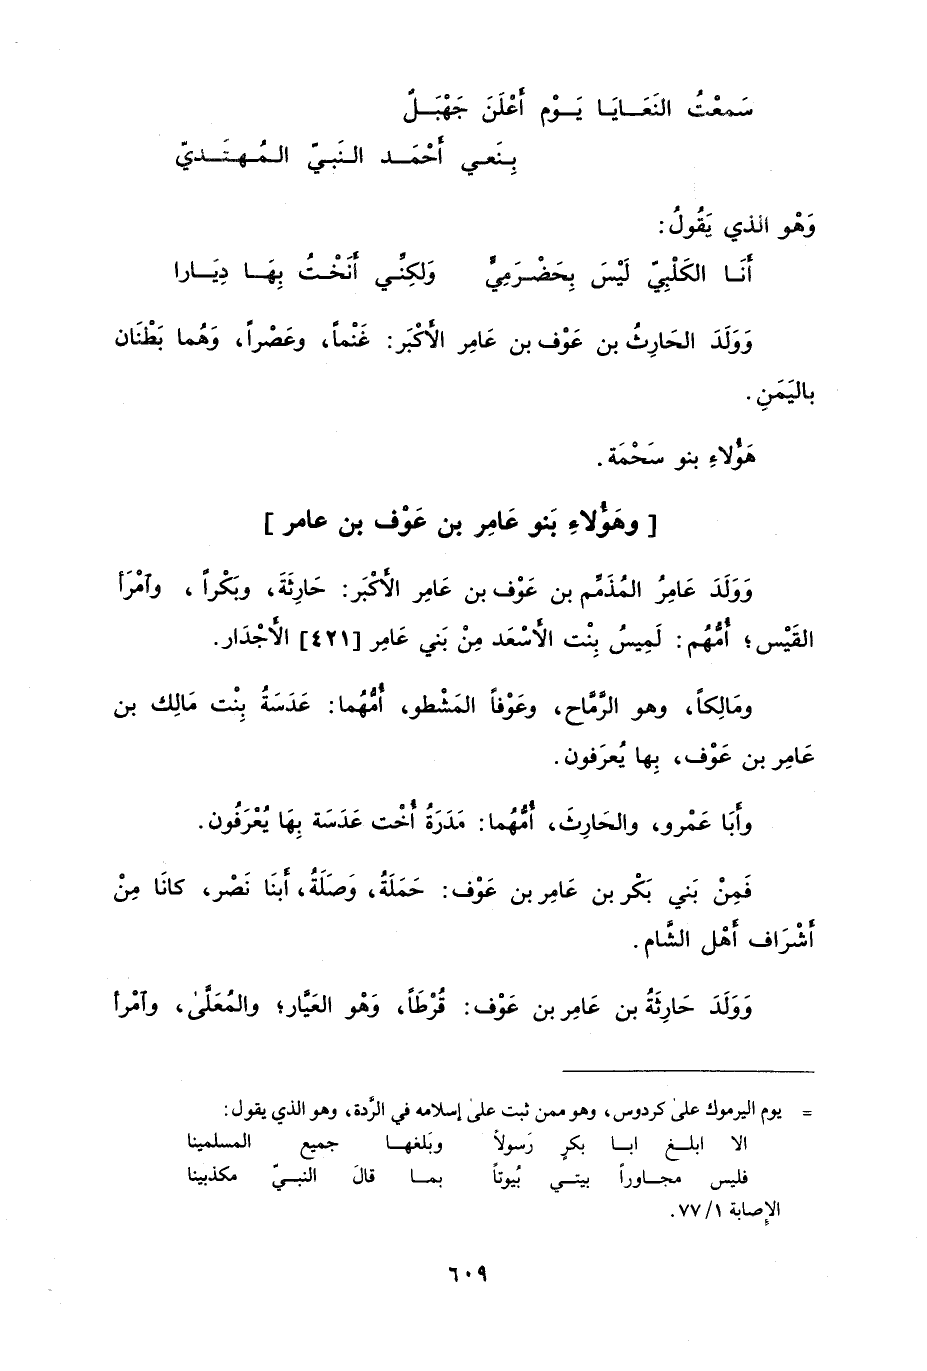 سَمعْتُ النَعَـايَا يَـوْم أَعْلَنَ جَهْبَـلٌ
بِـنَعـي أَحْمَـد الـنَبـيّ الـمُـهـتَـديّ
وَهْو الذي يَقُولُ:
أَنَـا الكَلْبِيّ لَيْسَ بِحَضْـرَمِيٍّ وَلكِنِّـي أَنَخْـتُ بِهَـا دِيَـارا
وَوَلَدَ الحَارِثُ بن عَوْف بن عَامِر الأَكْبَر: غَنْماً، وعَصْراً، وَهُما بَطْنَان
باليَمَنِ.
هَؤُلاءِ بنو سَحْمَة.
[ وهَؤُلاءِ بَنو عَامِر بن عَوْف بن عامر ]
وَوَلَدَ عَامِرُ المُذَمَّم بن عَوْف بن عَامِر الأَكْبَر: حَارِثَةَ، وبَكْراً ، وآمْرَأ
القَيْس؛ أُمُّهُم: لَمِيسُ بِنْت الأَسْعَد مِنْ بَني عَامِر [٤٢١] الأَجْدَار.
ومَالِكاً، وهو الرَّمَّاح، وعَوْفاً المَشْطو، أُمُّهُما: عَدَسَةُ بِنْت مَالِك بن
عَامِر بن عَوْف، بِها يُعرَفون.
وأَبَا عَمْرو، والحَارِثَ، أُمُّهُما: مَدَرَةُ أُخْت عَدَسَة بِهَا يُعْرَفُون.
فَمِنْ بَني بَكْر بن عَامِر بن عَوْف: حَمَلَةُ، وَصَلَةُ، أَبنَا نَصْر، كانَا مِنْ
أَشْرَاف أَهْل الشَّام.
وَوَلَدَ حَارِثَةُ بن عَامِر بن عَوْف: قُرْطَاً، وَهْو العَيَّار؛ والمُعَلَّىٰ، وآمْرأ
= يوم اليرموك علىٰ كردوس، وهو ممن ثبت علىٰ إسلامه في الرَّدة، وهو الذي يقول:
الا ابلـغ ابـا بكرٍ رَسولاً وبَلغهـا جميع المسلمينا
فليس مجـاوراً بيتـي بُيوتاً بمـا قالَ النبـيّ مكذبينا
الإصابة ١/ ٧٧.
٦٠٩